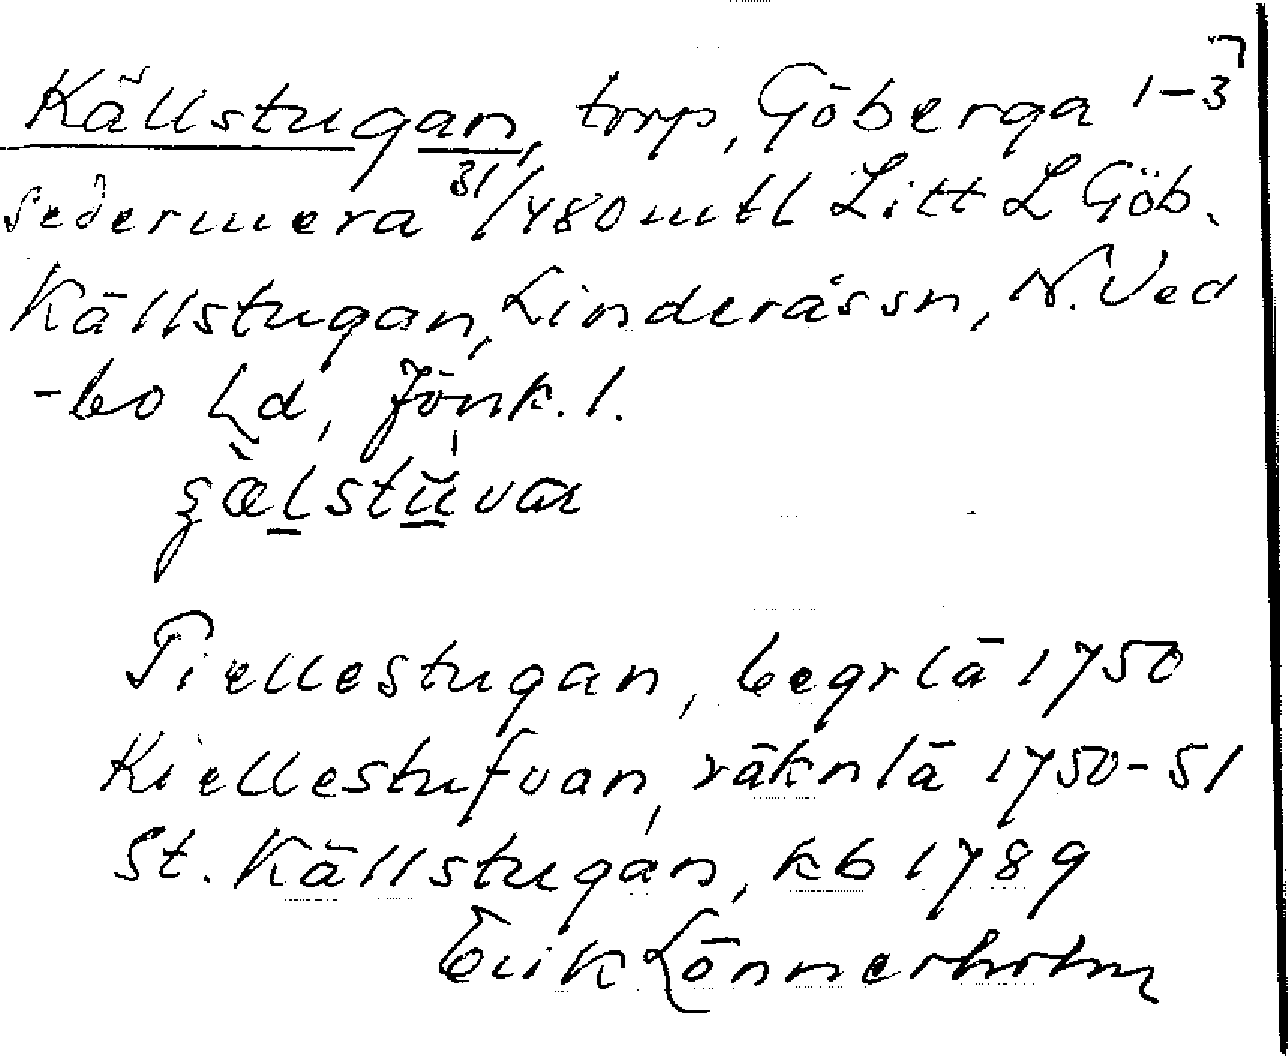 Källstugan, torp, Göberga 1-3
sedermera 31/480 mtl Litt L Göb.
Källstugan, Linderås sn, N. Ved
-bo hd, Jönk. l.
Tiellestugan, begrlä 1750
Kiellestufvan, räknlä 1750-51
St. Källstugan, kb 1789
Erik Lönnerholm